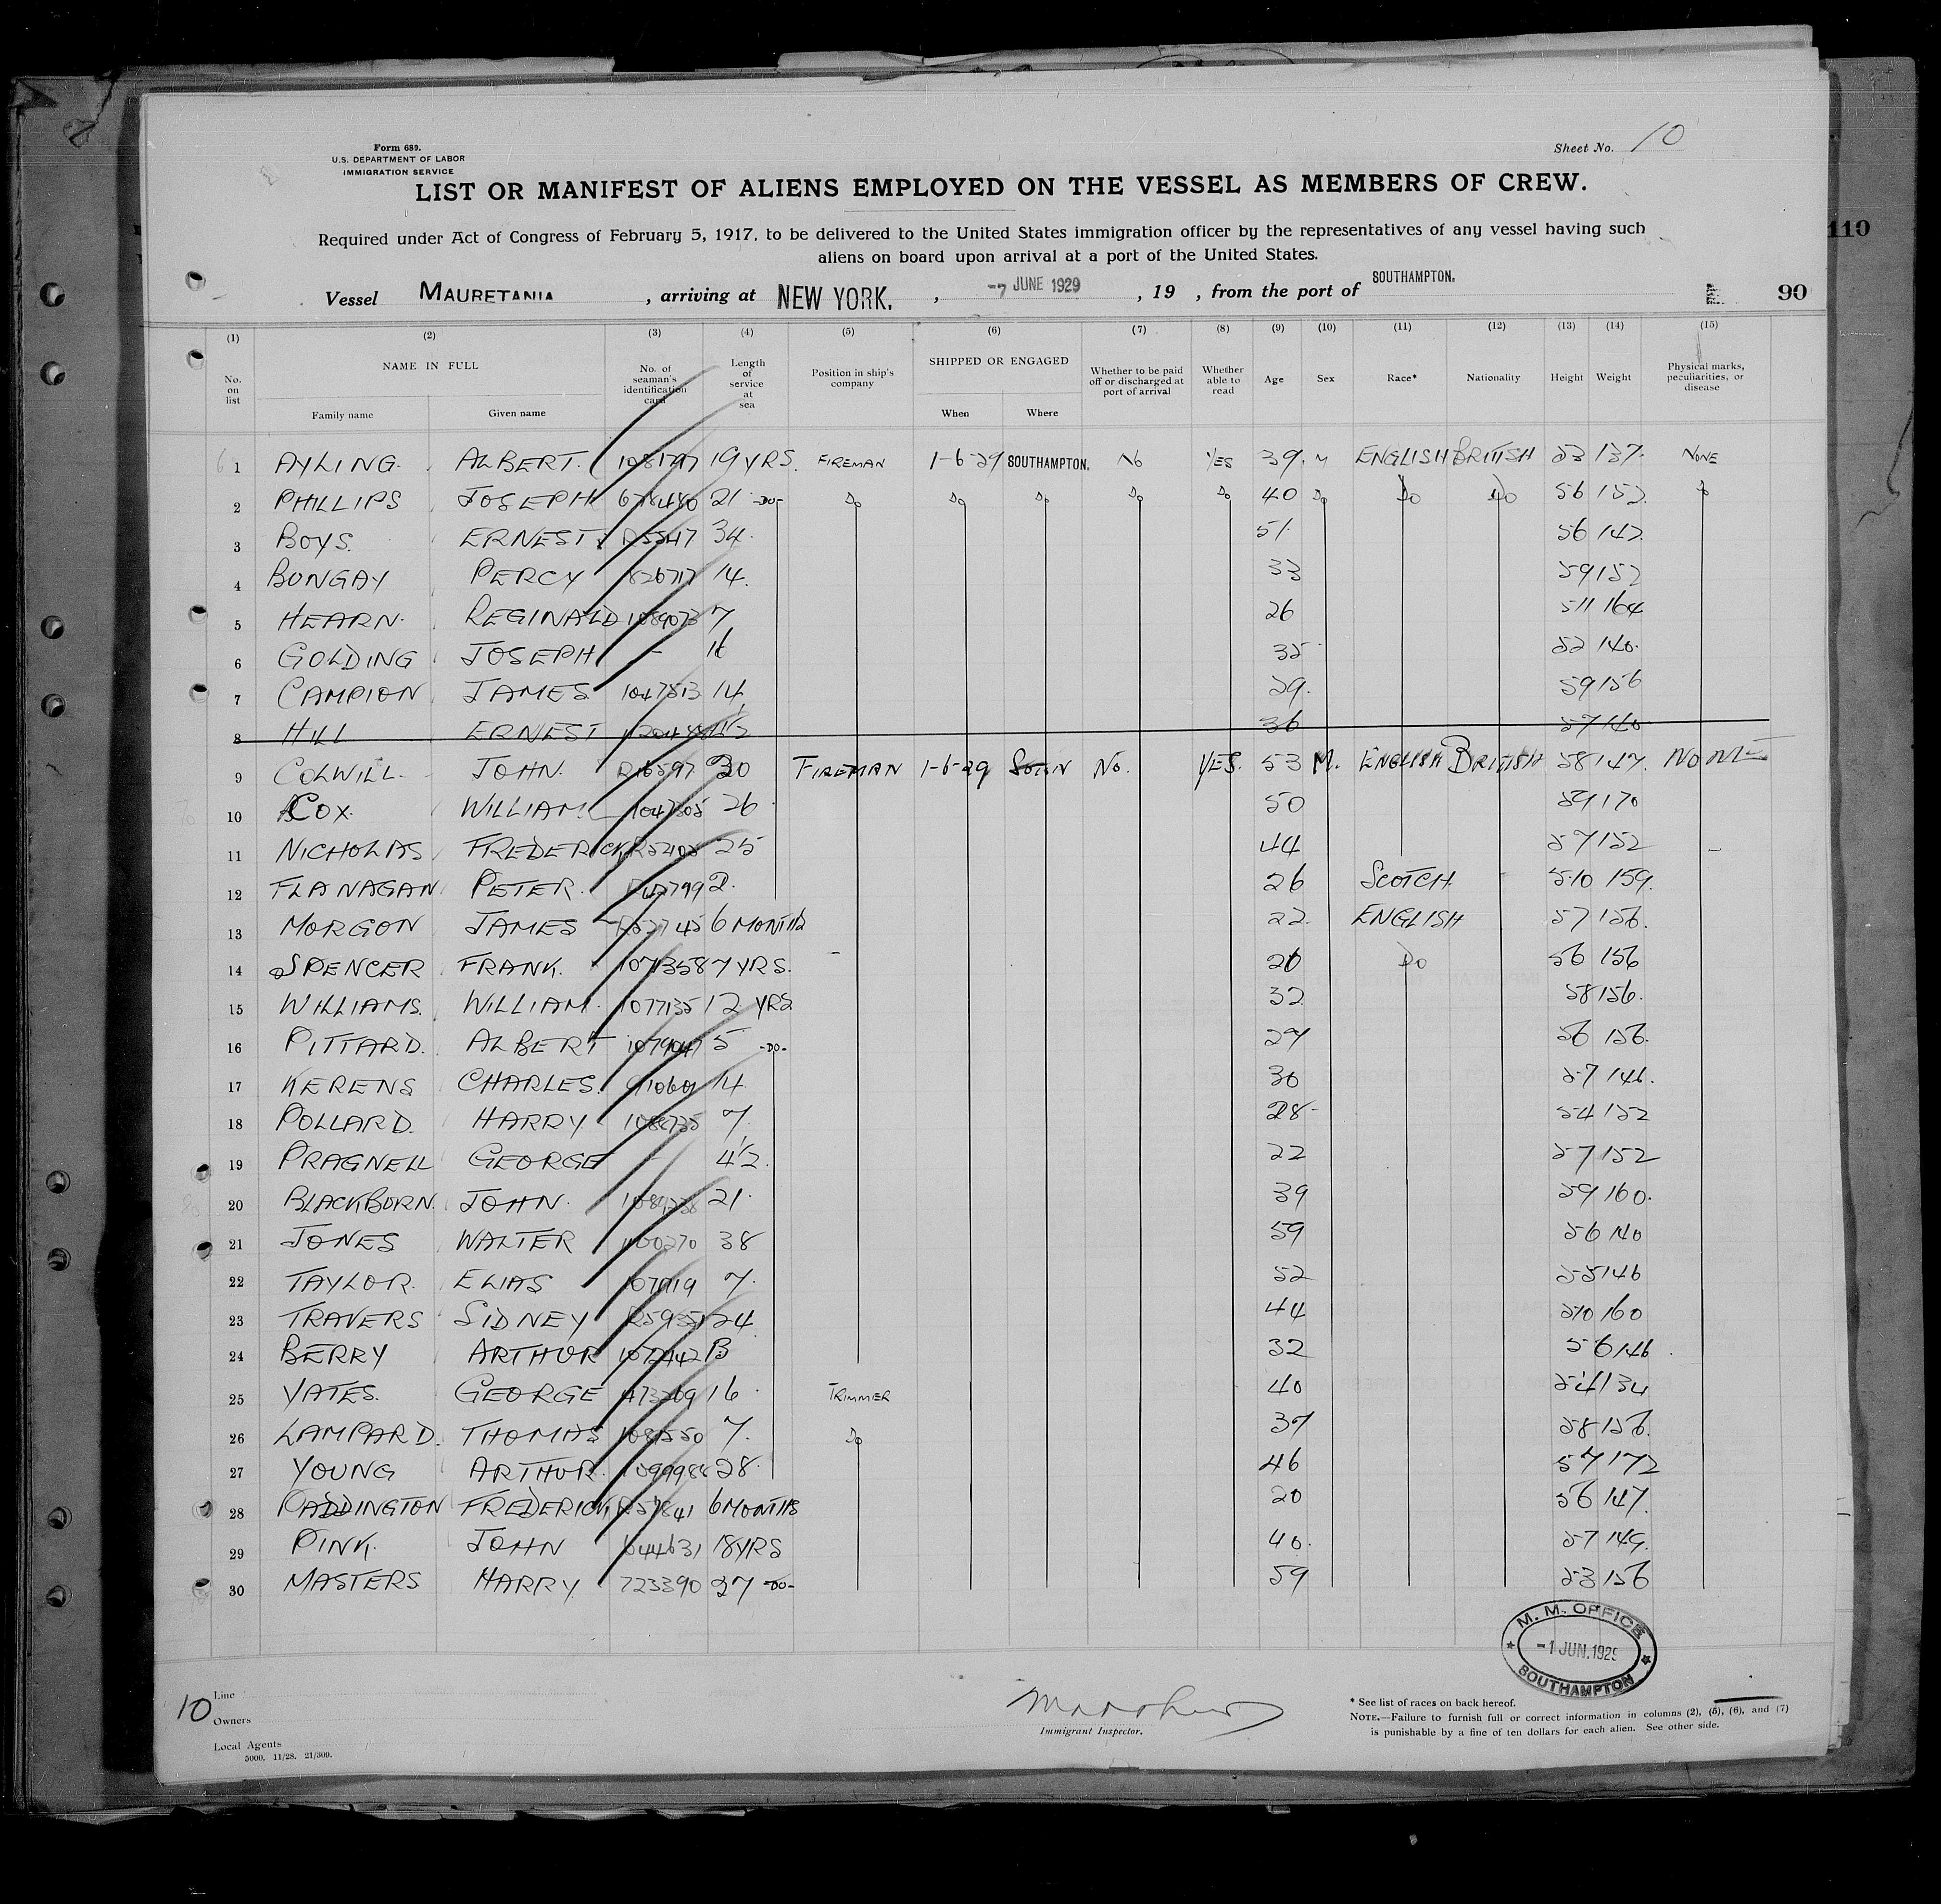 Form 689.
U.S. DEPARTMENT OF LABOR
IMMIGRATION SERVICE
Sheet No. 10
LIST OR MANIFEST OF ALIENS EMPLOYED ON THE VESSEL AS MEMBERS OF CREW.
Required under Act of Congress of February 5, 1917, to be delivered to the United States immigration officer by the representatives of any vessel having such
aliens on board upon arrival at a port of the United States.
110
Vessel MAURETANIA, arriving at NEW YORK., -7 JUNE 1929, 19 , from the port of SOUTHAMPTON.
90
(1) (2) (3) (4) (5) (6) (7) (8) (9) (10) (11) (12) (13) (14) (15)
No. on list NAME IN FULL Family name Given name No. of seaman's identification card Length of service at sea Position in ship's company SHIPPED OR ENGAGED When Where Whether to be paid off or discharged at port of arrival Whether able to read Age Sex Race* Nationality Height Weight Physical marks, peculiarities, or disease
1 AYLING. ALBERT. 19 YRS. FIREMAN 1-6-29 SOUTHAMPTON. NO YES 39. M ENGLISH BRITISH 53 137. NONE
2 PHILLIPS JOSEPH 21 -DO- Do Do Do Do Do 40 Do Do Do 56 152. Do
3 BOYS. ERNEST 34. 51. 56 142
4 BUNGAY PERCY 14. 33 59 152
5 HEARN. REGINALD 7 26 511 164
6 GOLDING JOSEPH - 16 35 52 140.
7 CAMPION JAMES 1047513 14 29. 59 156
8 HILL ERNEST 36 57 140
9 COLWILL. JOHN. R16597 30 FIREMAN 1-6-29 SOTON NO. YES. 53 M. ENGLISH BRITISH 58 147. NONE
10 COX. WILLIAM. 26 50 59 170
11 NICHOLAS FREDERICK 25 44 57 152
12 FLANAGAN PETER. 2. 26 SCOTCH. 510 159.
13 MORGON JAMES 6 MONTHS 22. ENGLISH 57 156.
14 SPENCER FRANK. 1071358 7 YRS. 26 Do 56 156
15 WILLIAMS. WILLIAM. 1077135 12 YRS 32 58 156.
16 PITTARD. ALBERT 5 -DO- 29 56 156.
17 KERENS CHARLES. 14 30 57 146.
18 POLLARD. HARRY 7. 28- 54 152
19 PRAGNELL GEORGE - 4½. 22 57 152
20 BLACKBORN. JOHN. 21. 39 59 160.
21 JONES WALTER 38 59 56 140
22 TAYLOR. ELIAS 7. 52 55 146
23 TRAVERS SIDNEY 24 44 510 160
24 BERRY ARTHUR 13 32 56 146.
25 YATES. GEORGE 16. TRIMMER 40 54 134
26 LAMPARD. THOMAS 7. Do 37 58 156.
27 YOUNG ARTHUR. 28. 46 57 172
28 PADDINGTON FREDERICK 6 MONTHS 20 56 147.
29 PINK. JOHN 644631 18 YRS 40. 57 149.
30 MASTERS HARRY 723390 27 -DO- 59 53 156
M. M. OFFICE
-1 JUN.1929
SOUTHAMPTON
10
Line
Owners
Local Agents
5000. 11/28. 21/309.
Immigrant Inspector.
* See list of races on back hereof.
NOTE.—Failure to furnish full or correct information in columns (2), (5), (6), and (7)
is punishable by a fine of ten dollars for each alien. See other side.